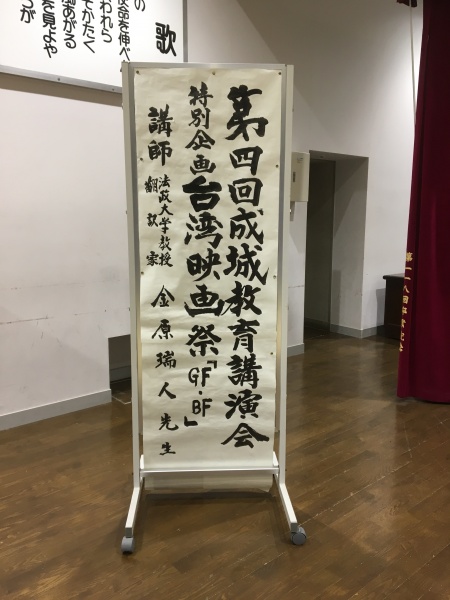 第四回成城教育講演会
特別企画台湾映画祭「GF・BF」
講師 法政大学教授 翻訳家 金原瑞人先生
歌
の
使命を伸べ
われら
そかたく
あがる
を見よや
が
第一一八回卒業記念